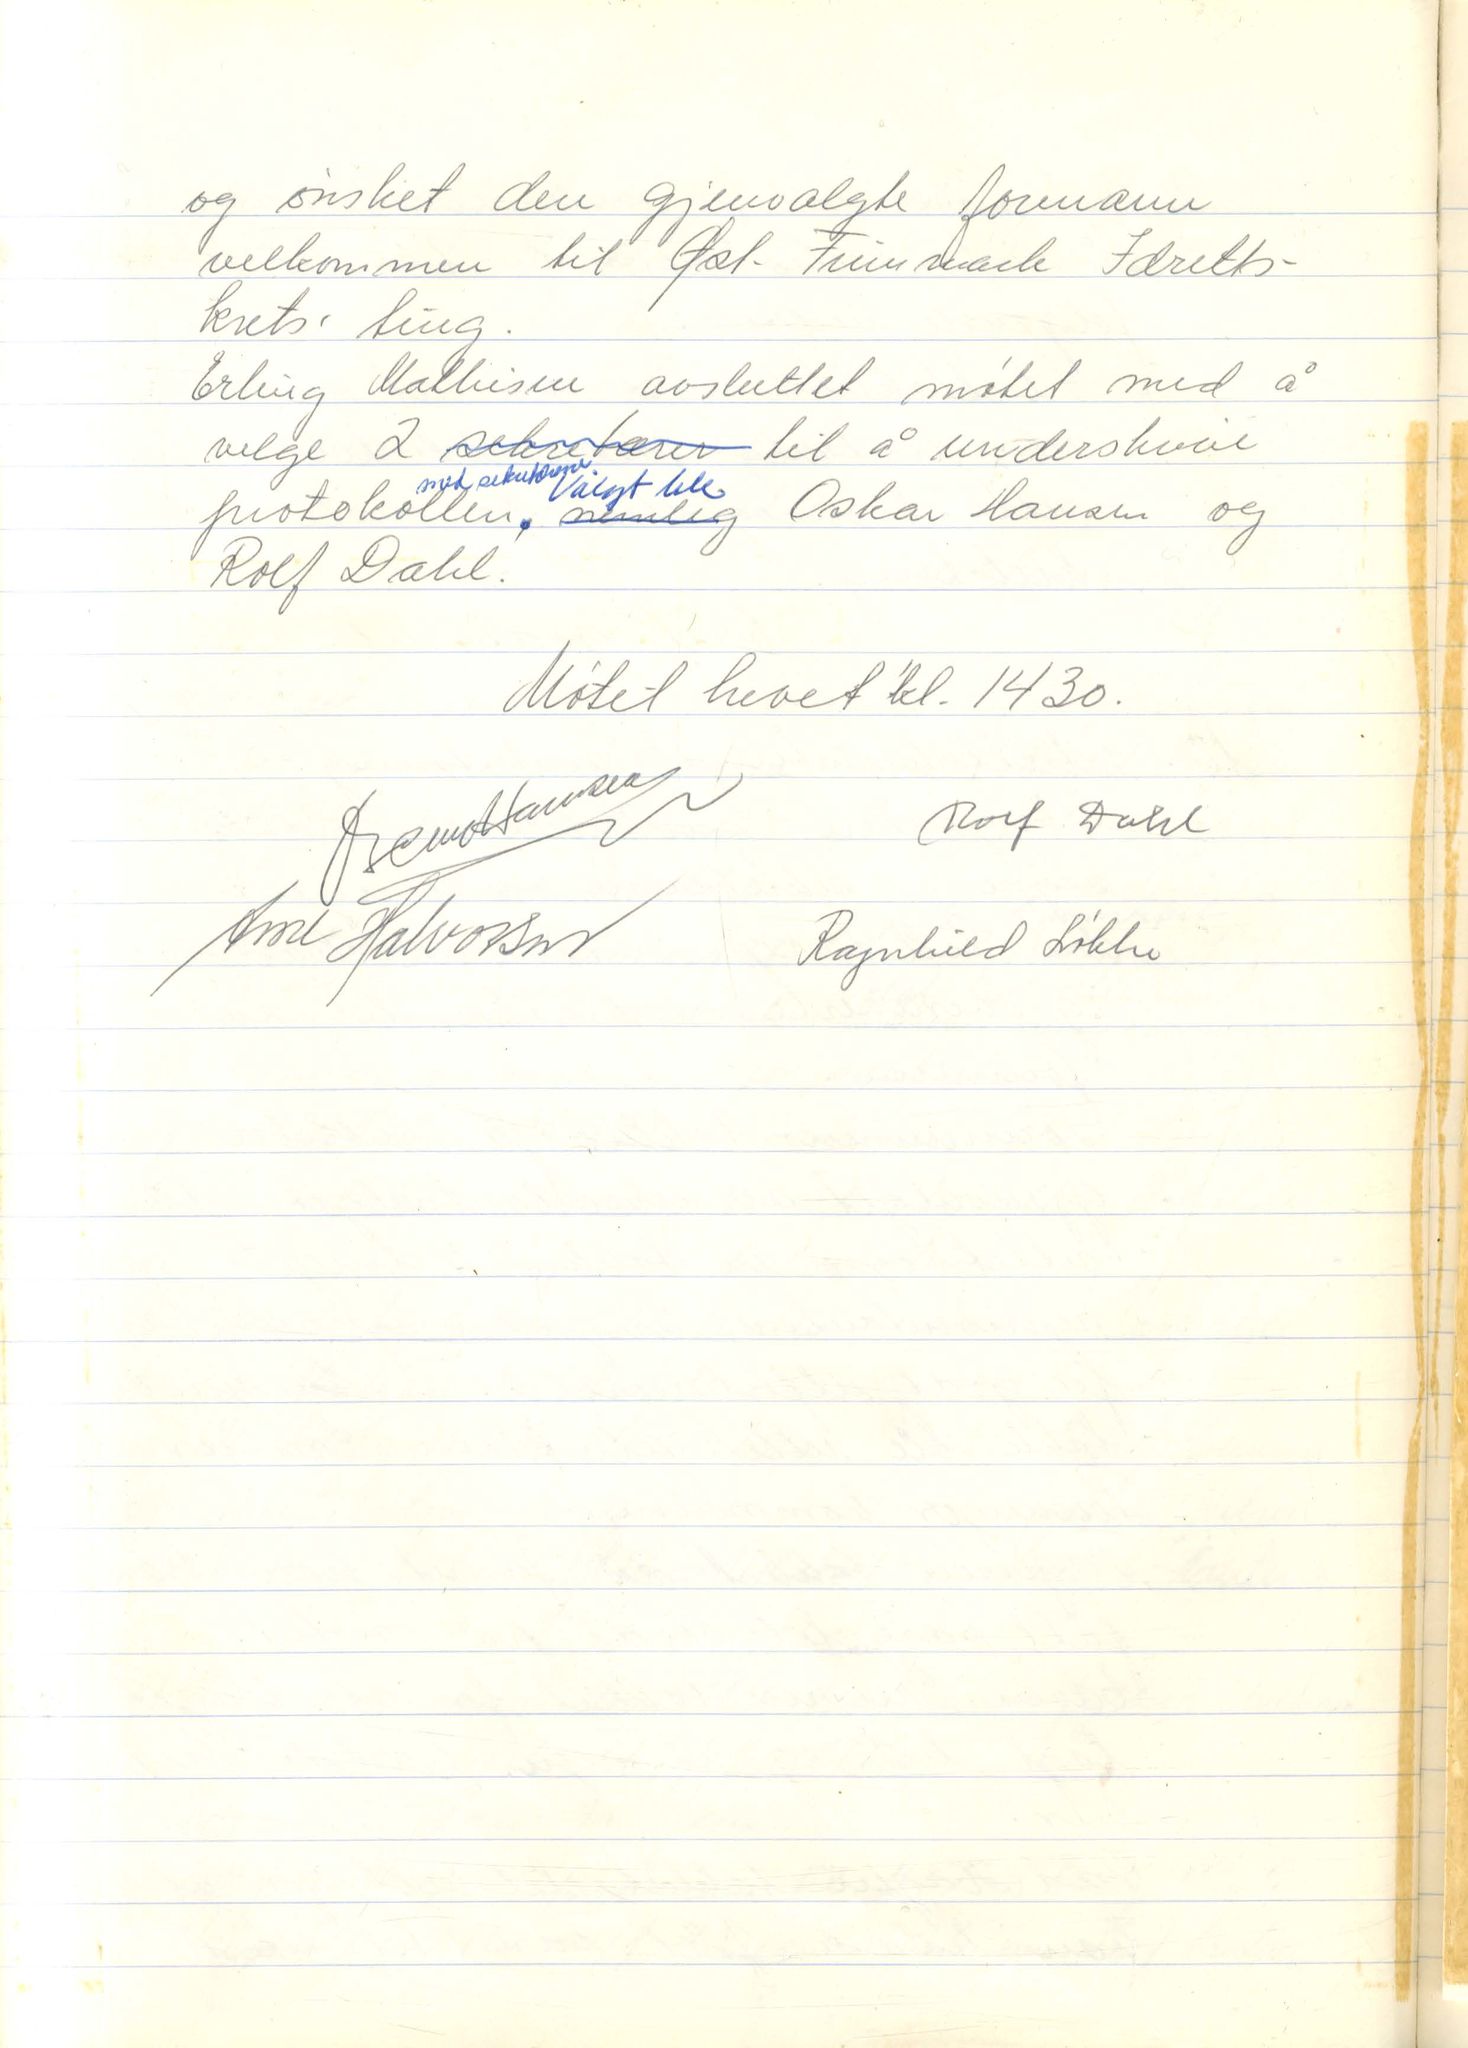 og ønsket den gjenvalgte formann
velkommen til Øst-Finnmark Idretts-
krets' ting.
Erling Mathisen avsluttet møtet med å
velge 2 sekretærer til å underskrive
med sekretærene Valgt ble
protokollen, nemlig Oskar Hansen og
Rolf Dahl.
Møtet hevet kl. 1430.
Hansen
Rolf Dahl
Arne Halvorsen
Ragnhild Løkke